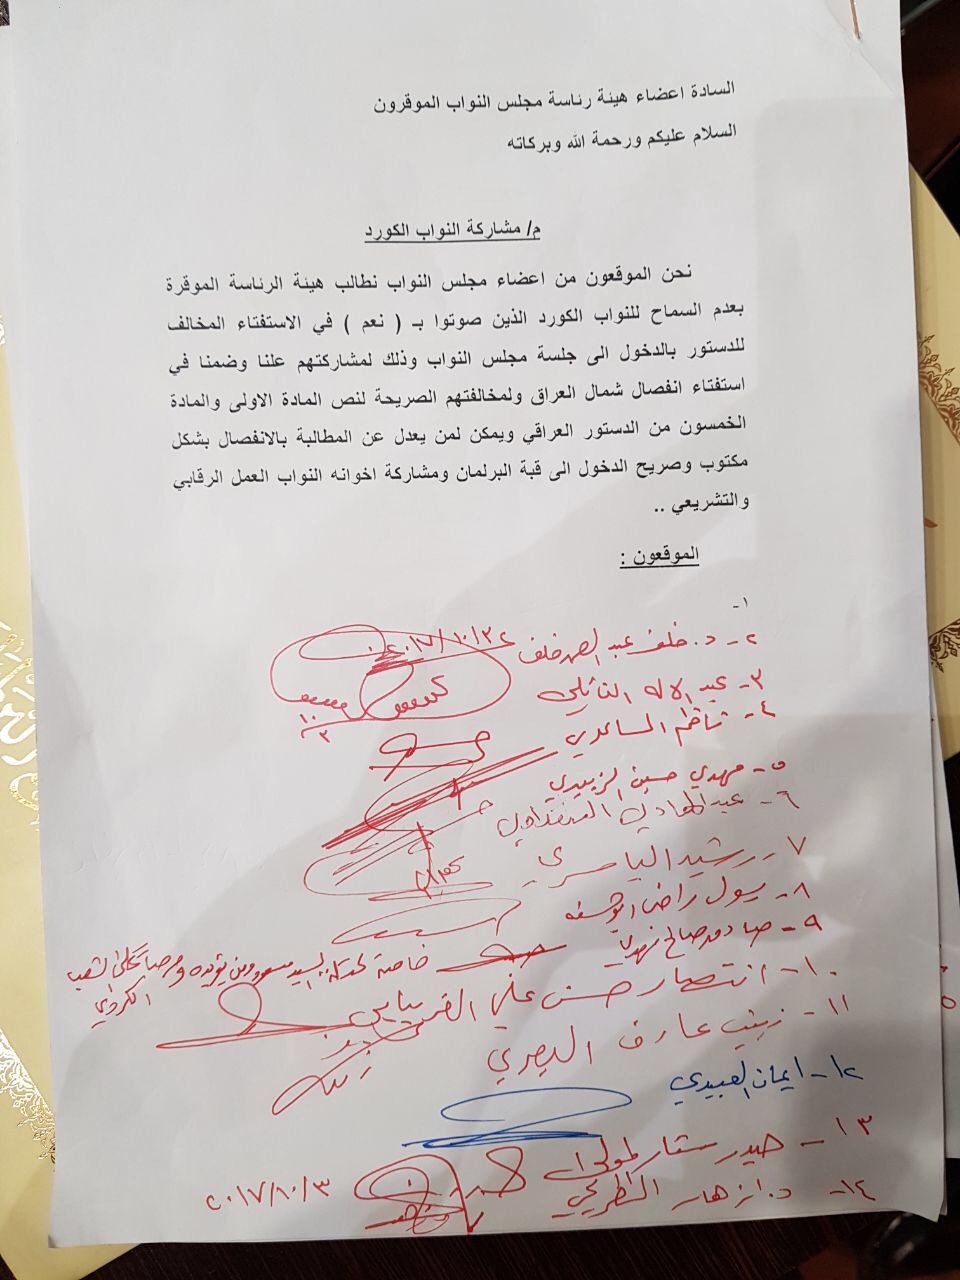 السادة اعضاء هيئة رئاسة مجلس النواب الموقرون
السلام عليكم ورحمة الله وبركاته
م/ مشاركة النواب الكورد
نحن الموقعون من اعضاء مجلس النواب نطالب هيئة الرئاسة الموقرة
بعدم السماح للنواب الكورد الذين صوتوا بـ ( نعم ) في الاستفتاء المخالف
للدستور بالدخول الى جلسة مجلس النواب وذلك لمشاركتهم علنا وضمنا في
استفتاء انفصال شمال العراق ولمخالفتهم الصريحة لنص المادة الاولى والمادة
الخمسون من الدستور العراقي ويمكن لمن يعدل عن المطالبة بالانفصال بشكل
مكتوب وصريح الدخول الى قبة البرلمان ومشاركة اخوانه النواب العمل الرقابي
والتشريعي ..
الموقعون :
١-
٢- د. خلف عبد الصمد خلف
٣- عبد الاله النائلي
٤- كاظم الساعدي
٥- مهدي حسين الزبيدي
٦- عبد الهادي
٧- رشيد الياسري
٨- رسول راضي
٩- صادق
خاصة السيد مسعود ومن يؤيده الشعب
الكردي
١٠- انتصار حسن علي
١١- زينب عارف البصري
١٢- ايمان العبيدي
١٣- حيدر ستار المولى
١٤- د. ازهار الطريحي ٢٠١٧/١٠/٣